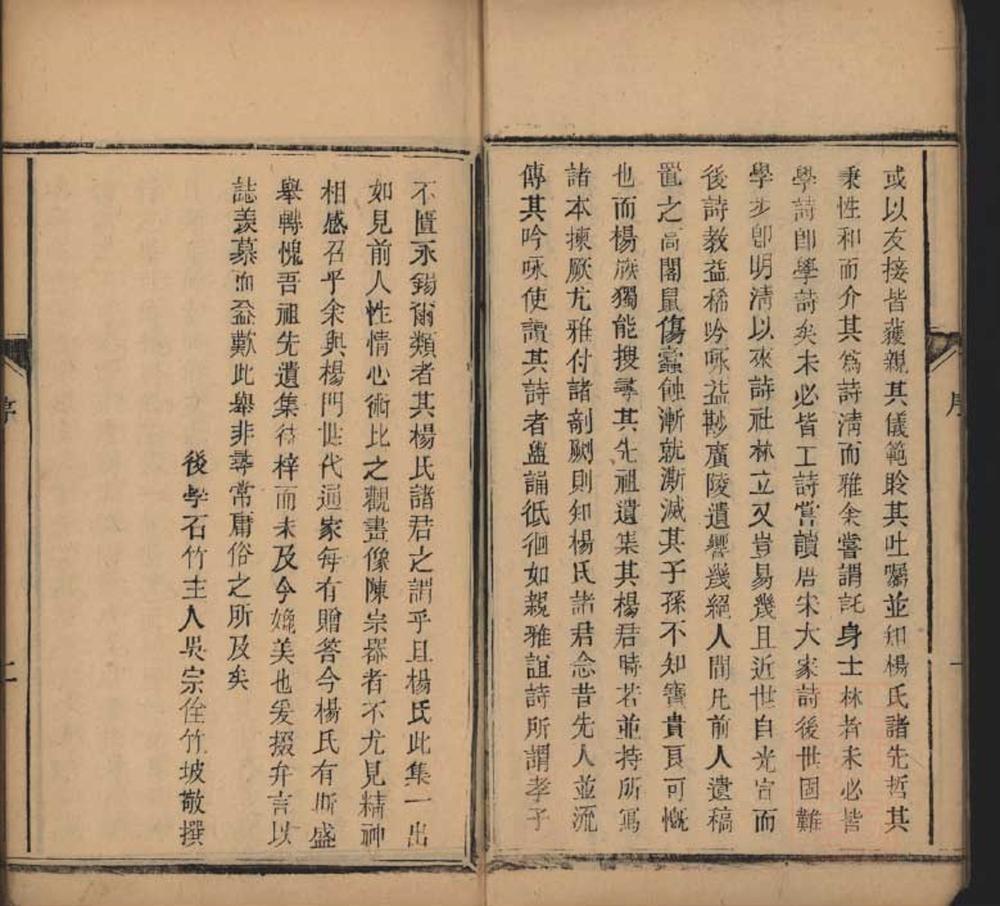 或以友接皆獲親其儀範聆其吐囑並知楊氏諸先哲其
秉性和而介其為詩清而雅余嘗謂託身士林者未必皆
學詩卽學詩矣未必皆工詩嘗讀唐宋大家詩後世固難
學步卽明清以來詩社林立又豈易幾且近世自光宣而
後詩教益稀吟咏益尠廣陵遺響幾絕人間凡前人遺稿
置之高閣鼠傷蠹蝕漸就澌滅其子孫不知寶貴良可慨
也而楊族獨能搜尋其先祖遺集其楊君時若並持所寫
諸本揀厥尤雅付諸剞劂則知楊氏諸君念昔先人並流
傳其吟咏使讀其詩者盥誦低徊如親雅誼詩所謂孝子
不匱永錫爾類者其楊氏諸君之謂乎且楊氏此集一出
如見前人性情心術比之觀畫像陳宗器者不尤見精神
相感召乎余與楊門世代通家每有贈答今楊氏有斯盛
舉轉愧吾祖先遺集待梓而未及今媲美也爰掇弁言以
誌羨慕而益歎此舉非尋常庸俗之所及矣
後學石竹主人吳宗佺竹坡敬撰
序
一
序
二